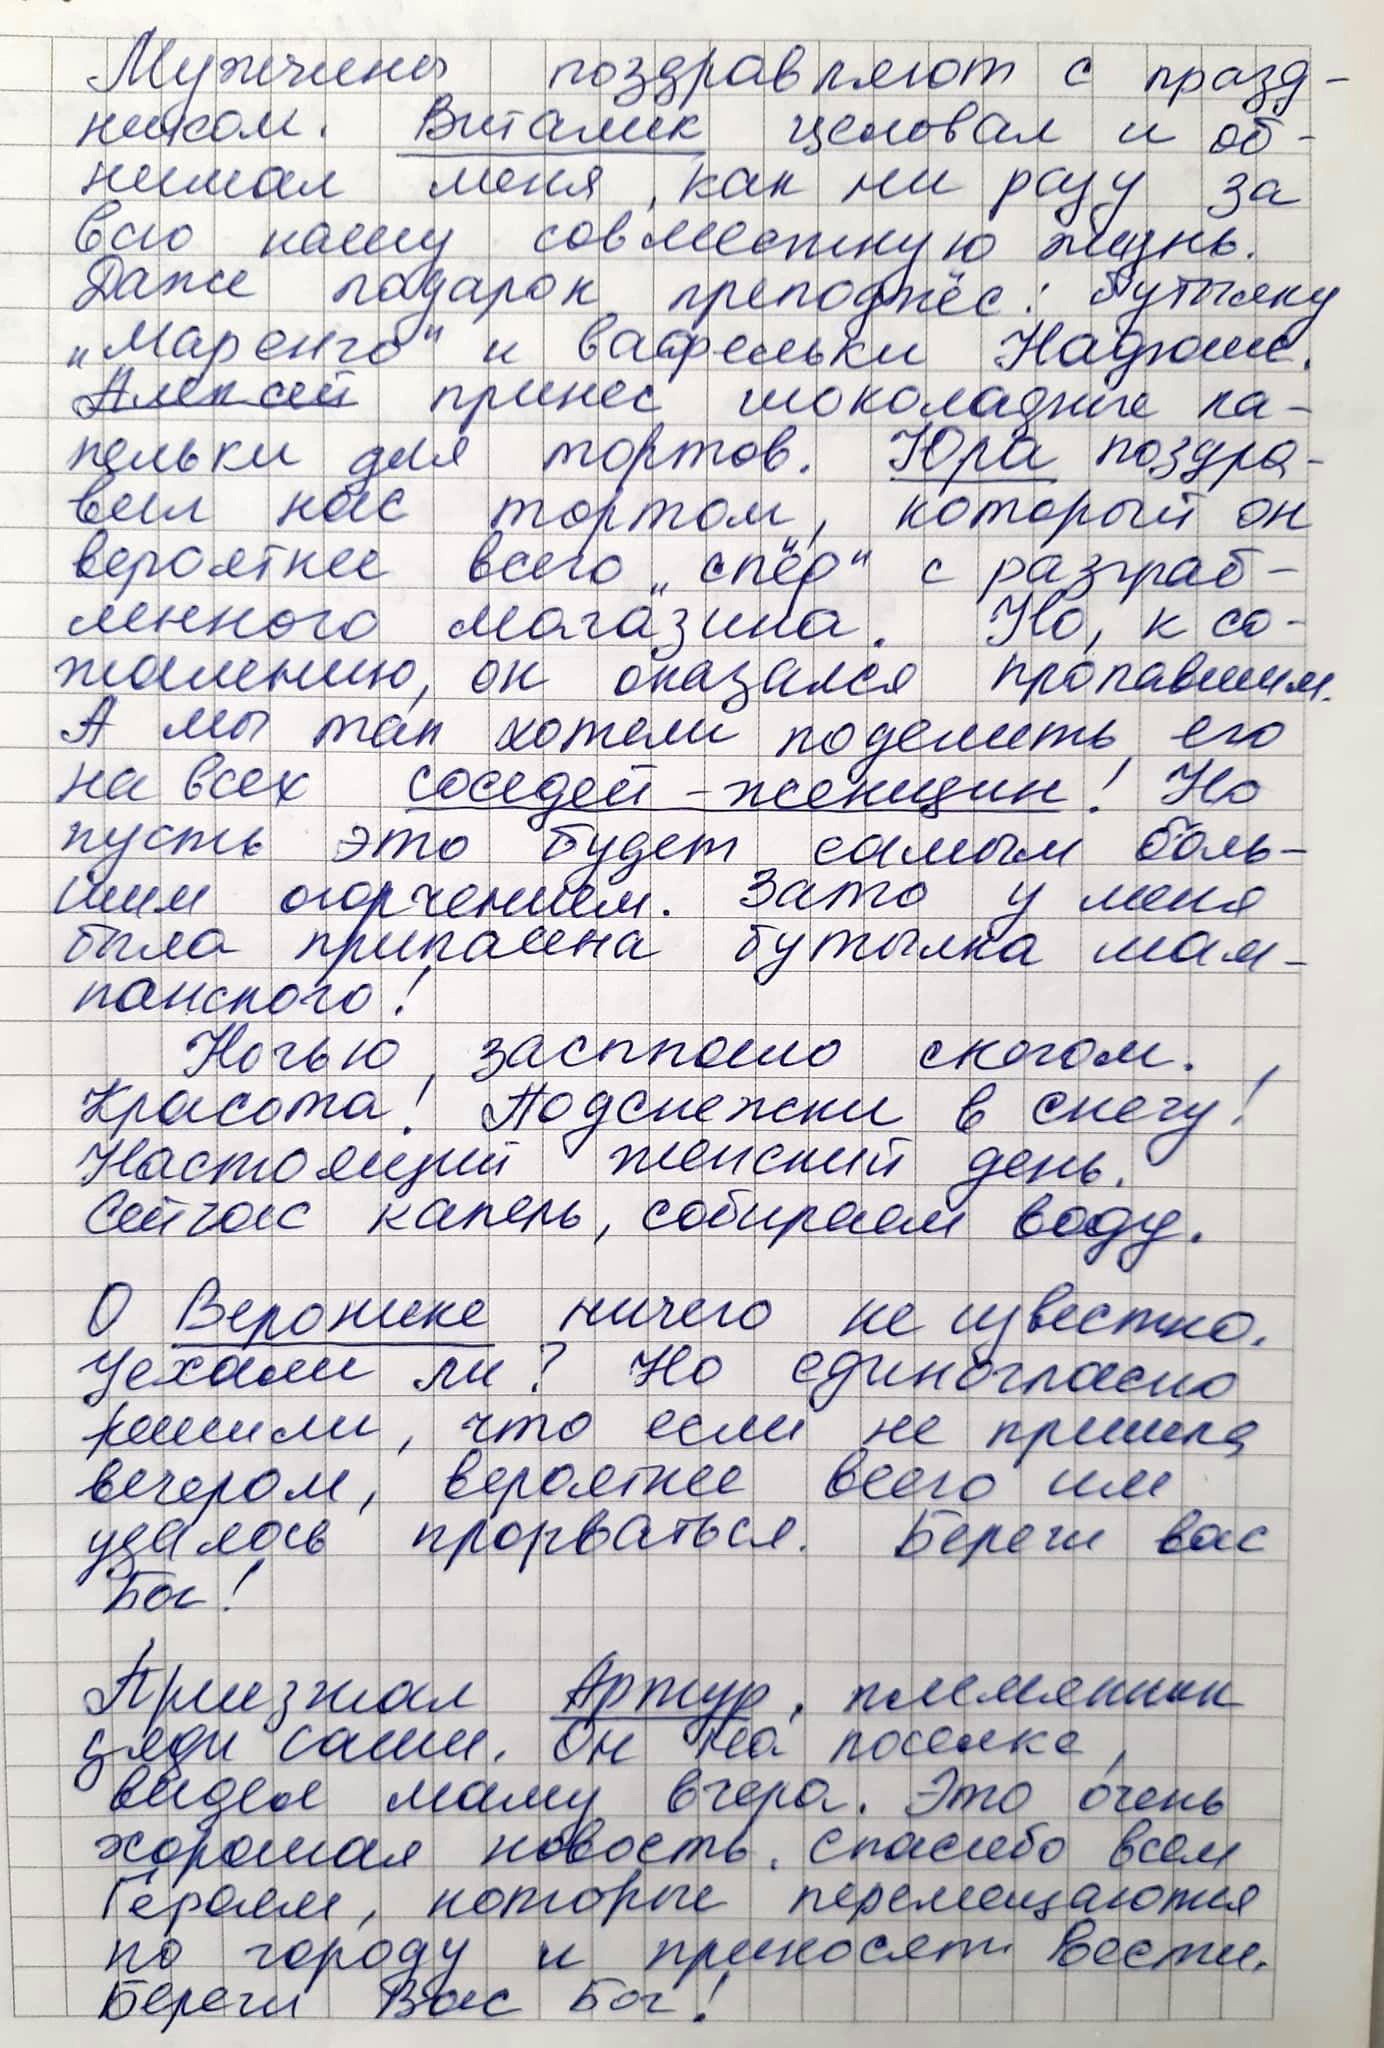 Мужчины поздравляют с празд-
ником. Виталик целовал и об-
нимал меня, как ни разу за
всю нашу совместную жизнь.
Даже подарок преподнёс: бутылку
„Маренго" и вафельки Надюше.
Алексей принёс шоколадные ка-
пельки для тортов. Юра поздра-
вил нас тортом, который он
вероятнее всего „спёр" с разграб-
ленного магазина. Но, к со-
жалению, он оказался пропавшим.
А мы так хотели поделить его
на всех соседей-женщин! Но
пусть это будет самым боль-
шим огорчением. Зато у меня
была припасена бутылка шам-
панского!
Ночью засыпало снегом.
Красота! Подснежники в снегу!
Настоящий женский день.
Сейчас капель, собираем воду.
О Веронике ничего не известно.
Уехали ли? Но единогласно
решили, что если не пришла
вечером, вероятнее всего им
удалось прорваться. Береги вас
Бог!
Приезжал Артур, племянник
дяди Саши. Он на поселке,
видел маму вчера. Это очень
хорошая новость. Спасибо всем
Героям, которые перемещаются
по городу и приносят вести.
Береги Вас Бог!